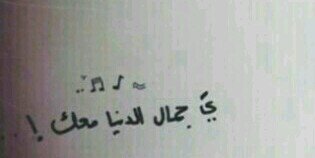 يَ جمال الدنيا معك !..